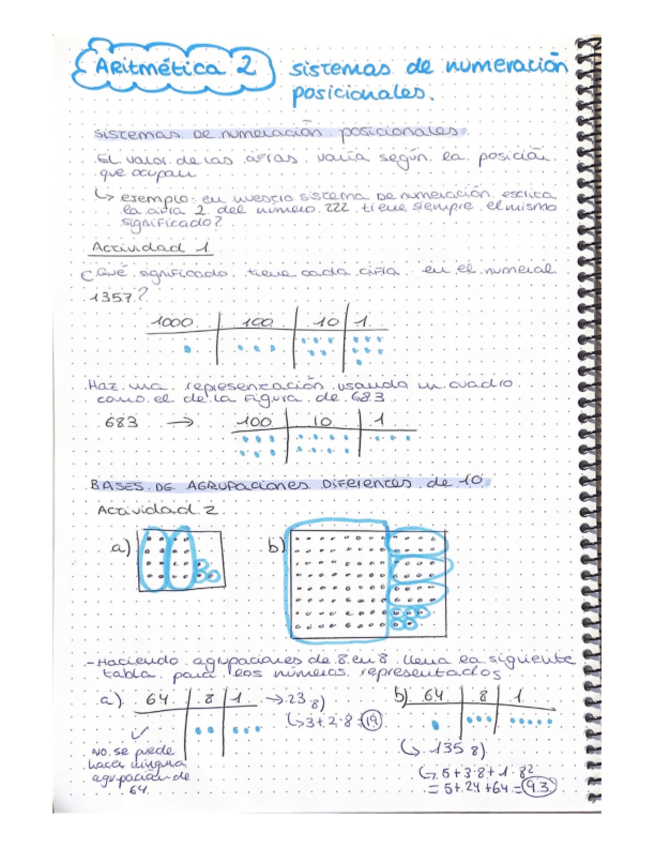 Aritmética 2
sistemas de numeración
posicionales.
sistemas de numeración posicionales.
El valor de las cifras varía según la posición
que ocupan
↳ ejemplo: en nuestro sistema de numeración escrita
la cifra 2 del número 222 tiene siempre el mismo
significado?
Actividad 1
¿Qué significado tiene cada cifra en el numeral
1357?
1000 100 10 1
Haz una representación usando un cuadro
como el de la figura de 683
683 → 100 10 1
BASES DE AGRUPACIONES DIFERENTES de 10.
Actividad 2
a) b)
- Haciendo agrupaciones de 8 en 8 llena la siguiente
tabla para los números representados
a) 64 8 1 → 23 8)
↳ 3+2·8=19
✓
no se puede
hacer ninguna
agrupación de
64.
b) 64 8 1
↳ 135 8)
↳ 5+3·8+1·8²
= 5+24+64=93